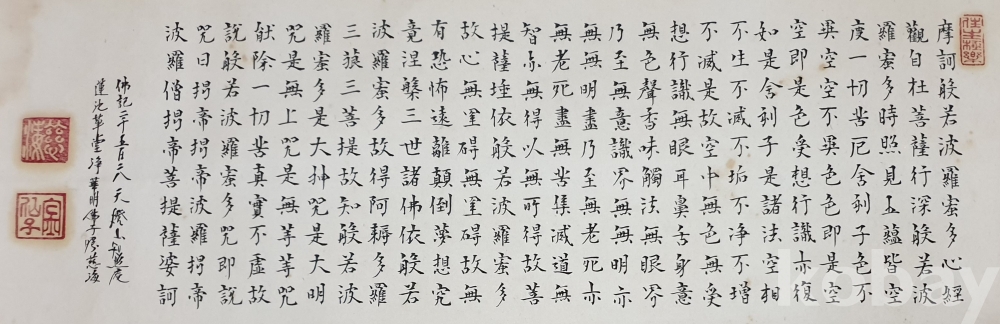 往生極樂
摩訶般若波羅蜜多心經
觀自在菩薩行深般若波
羅蜜多時照見五蘊皆空
度一切苦厄舍利子色不
異空空不異色色即是空
空即是色受想行識亦復
如是舍利子是諸法空相
不生不滅不垢不淨不增
不減是故空中無色無受
想行識無眼耳鼻舌身意
無色聲香味觸法無眼界
乃至無意識界無無明亦
無無明盡乃至無老死亦
無老死盡無苦集滅道無
智亦無得以無所得故菩
提薩埵依般若波羅蜜多
故心無罣碍無罣碍故無
有恐怖遠離顛倒夢想究
竟涅槃三世諸佛依般若
波羅蜜多故得阿耨多羅
三藐三菩提故知般若波
羅蜜多是大神咒是大明
咒是無上咒是無等等咒
能除一切苦真實不虛故
說般若波羅蜜多咒即說
咒曰揭帝揭帝波羅揭帝
波羅僧揭帝菩提薩婆訶
佛記二千五百二八天
蓮池華堂淨業明佛子
kobay